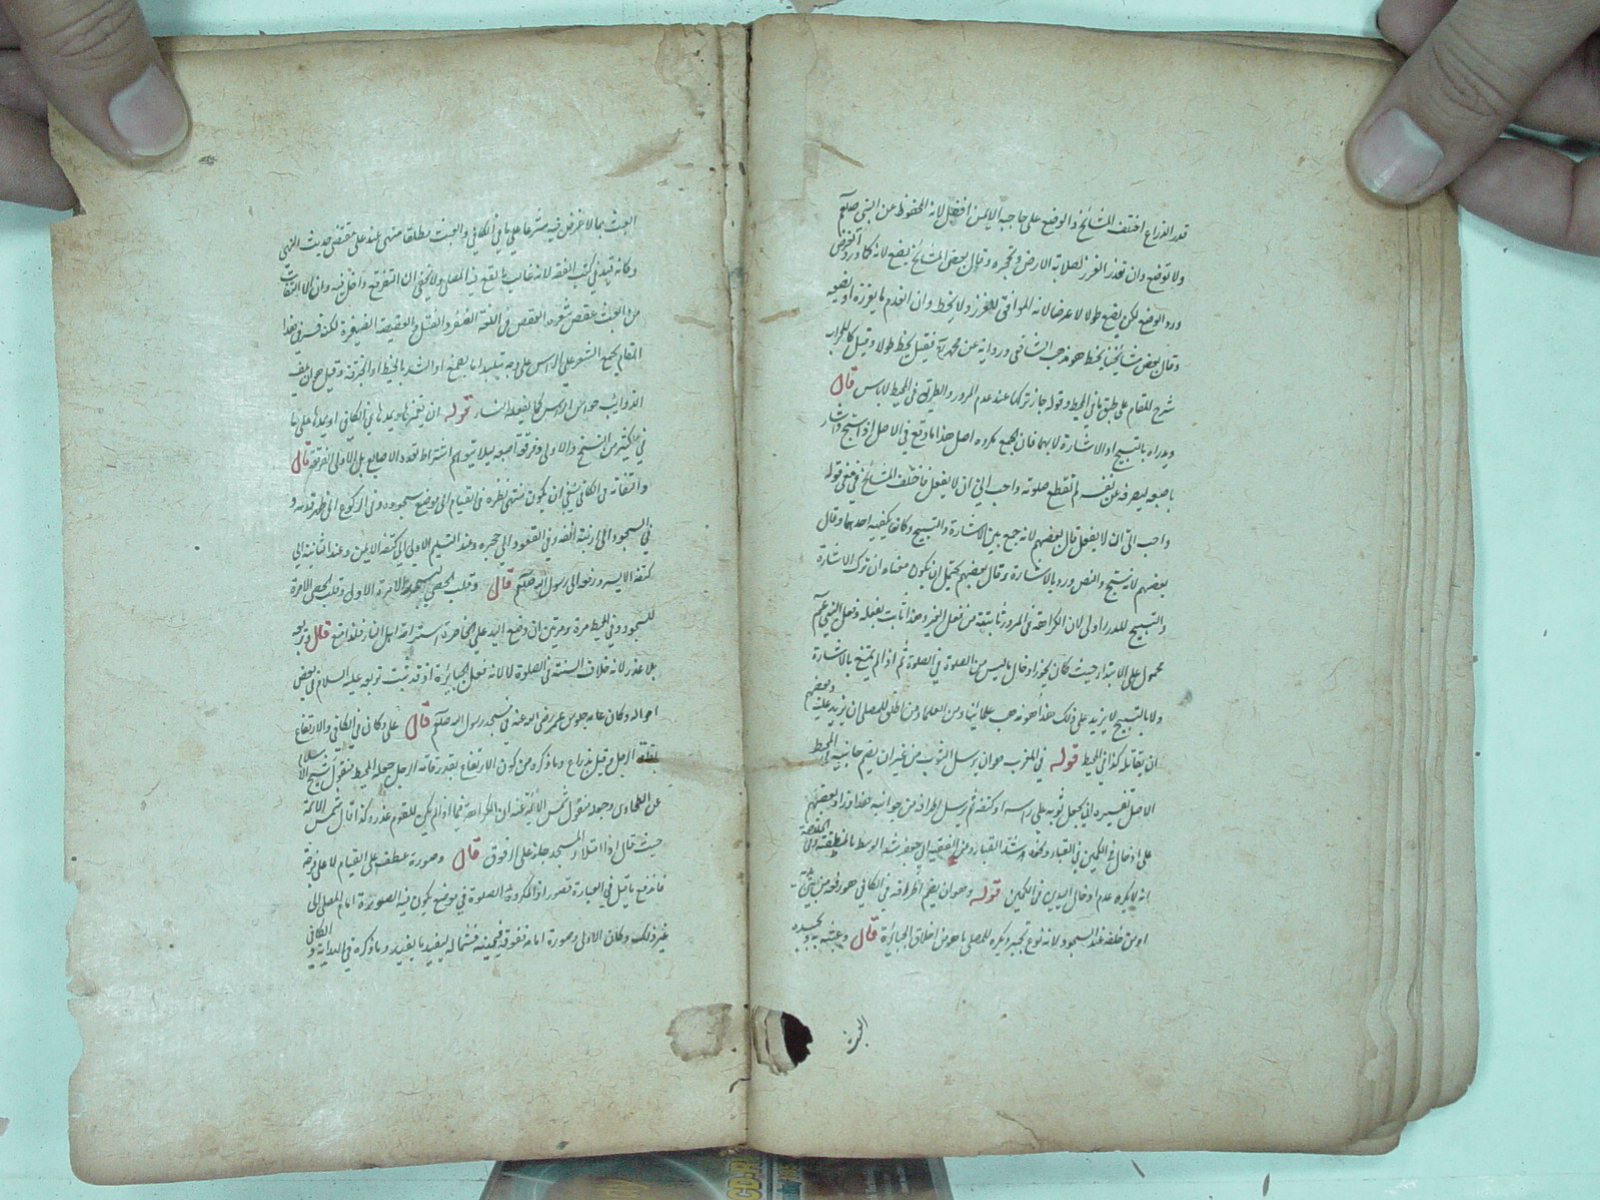 قدر الذراع اختلف المشائخ والوضع على حاجبه الايمن افضل لانه المحفوظ عن النبي صلعم
ولا توضع وان تعذر الغرز لصلابة الارض وقال بعض المشائخ يضع لانه كما ورد الغرز
ورد الوضع لكن يضع طولا لا عرضا لانه الموافق للغرز ولا يخط وان انعدم ما يغرزه او يضعه
وقال بعض مشائخنا يخط هو مذهب الشافعي ورواية عن محمد فقيل يخط طولا وقيل كالمحراب
شرح للمقام على طبق ما في المحيط وقوله جاز تركها عند عدم المرور والطريق في المحيط لا باس قال
ويدراه بالتسبيح او الاشارة لا بهما فان الجمع مكروه اصل هذا ما وقع في الاصل اذا سبح واشار
باصبعه ليصرفه عن نفسه لم تقطع صلوته واحب الي ان لا يفعل فاختلف المشائخ في معنى قوله
واحب الي ان لا يفعل قال بعضهم لانه جمع بين الاشارة والتسبيح وكان يكفيه احدهما وقال
بعضهم لانه سبح والنص ورد بالاشارة وقال بعضهم يحتمل ان يكون معناه ان ترك الاشارة
والتسبيح للدرء اولى لان الكراهة في المرور ثابتة من فعل الغير وهذا ثابت بفعله وفعل النبي عم
محمول على الابتداء حيث كان يجوز ادخال ما ليس من الصلوة في الصلوة ثم اذا لم يمتنع بالاشارة
ولا بالتسبيح لا يزيد على ذلك هذا هو مذهب علمائنا ومن العلماء من اطلق للمصلي ان يزيد عليه وبعضهم
ان يقاتله كذا في المحيط قوله في المغرب هو ان يرسل الثوب من غير ان يضم جانبيه وفي المحيط
الاصل تفسيره ان يجعل ثوبه على راسه او كتفه ثم يرسل اطرافه من جوانبه هذا وزاد بعضهم
على ادخال اليدين في الكمين في القباء ونحوه وشد القباء وعن الفقيه ابي جعفر شد الوسط بالمنطقة وفي الخلاصة
انه لا يكره عدم ادخال اليدين في الكمين قوله وهو ان يضم اطرافه في الكافي هو رفعه من بين يديه
او من خلفه عند السجود لانه نوع تجبر ويكره للمصلي ما هو من اخلاق الجبابرة قال وعبثه به وبجسده
العبث
العبث بما لا غرض فيه شرعا على ما في الكافي والعبث مطلقا منهي عنه على مقتضى حديث النهي
وكانه قيد في كتب الفقه لانه غالب ما يقع فيه المصلي ولا يخفى ان التفرقع داخل فيه وان الالتفات
من العبث عقص شعره العقص في اللغة الضفر والفتل والعقيصة الضفيرة لكنه فسر في هذا
المقام بجمع الشعر على الراس على وجه يتلبد اما بصمغ او الشد بالخيط او الخرقة وقيل هو ان يلف
الذوائب حوالي الراس كما يفعله النساء قوله ان يغمزها ويمدها في الكافي او يمدها على ما
في كثير من النسخ والاولى وفرقعة اصبعه لئلا يتوهم اشتراط تعدد الاصابع بل الاولى الفرقعة قال
والتفاته في الكافي ينبغي ان يكون منتهى نظره في القيام الى موضع سجوده وفي الركوع الى ظهر قدميه و
في السجود الى ارنبة انفه وفي القعود الى حجره وعند التسليم الاولى الى كتفه الايمن وعند الثانية الى
كتفه الايسر ورفعه الى رسول الله صلعم قال وقلب الحصى ليسجد الا مرة الاولى وقلب الحصى الا مرة
للسجود وفي المحيط مرة ومرتين ان وضع اليد على الخاصرة استراحة اهل النار فلذا منع قال وتربعه
بلا عذر لانه خلاف السنة في الصلوة لا لانه فعل الجبابرة اذ قد ثبت تربعه عليه السلام في بعض
احواله وكان عامة جلوس عمر رضي الله عنه في مسجد رسول الله صلعم قال على دكان في الكافي والارتفاع
بقامة الرجل وقيل بذراع وما ذكره من كون الارتفاع بقدر قامة الرجل جعله المحيط منقول شيخ الاسلام
عن الطحاوي وجعله منقول شمس الائمة عنه ان الكراهة فيما اذا لم يكن للقوم عذر وكذا قال شمس الائمة
حيث قال اذا امتلأ المسجد جاز على الرفوف قال وصورة عطف على القيام لا على فرجة
فاندفع ما قيل في العبارة قصور اذ المكروه الصلوة في موضع يكون فيه الصورة امام المصلي الى
غير ذلك وكان الاولى وصورة امامه ففوقه فيمينه فشماله ليفيد ما يفيد وما ذكره في الهداية والكافي